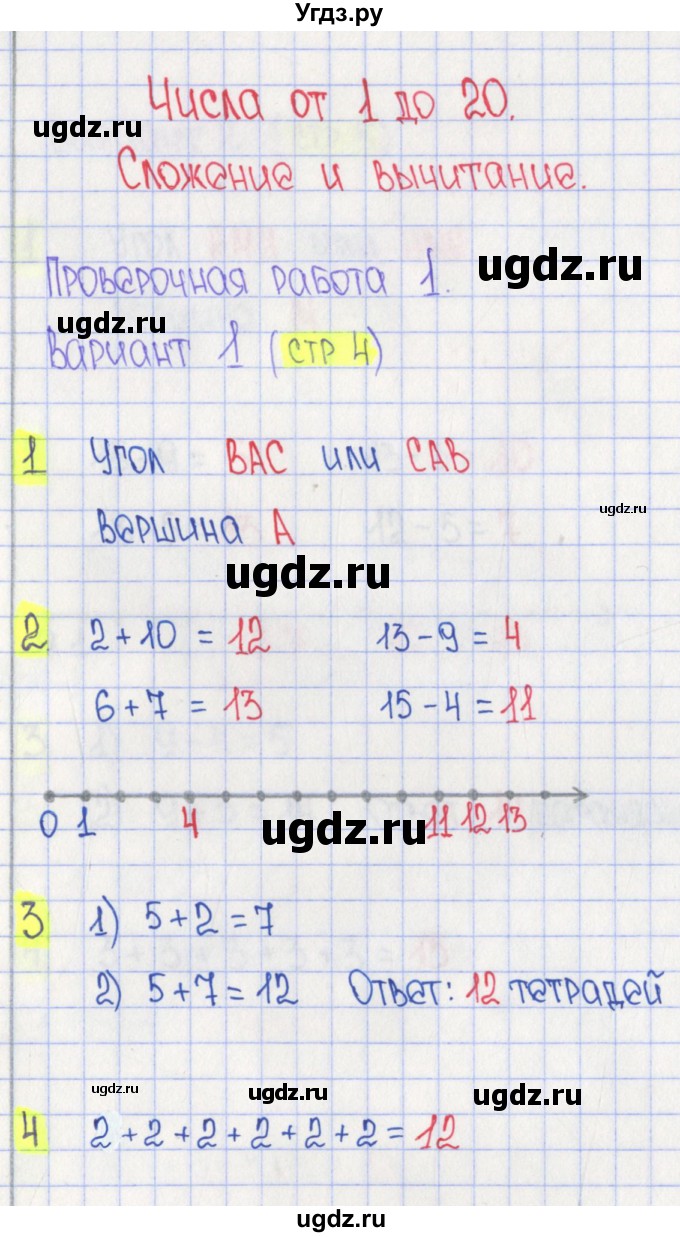 Угдз.ру
Числа от 1 до 20.
ugdz.ru
Сложение и вычитание.
Проверочная работа 1.
ugdz.ru
ugdz.ru
Вариант 1 (стр 4)
1 Угол ВАС или САВ
ugdz.ru
вершина А
ugdz.ru
2 2 + 10 = 12 13 - 9 = 4
6 + 7 = 13 15 - 4 = 11
0 1 4 11 12 13
ugdz.ru
3 1) 5 + 2 = 7
2) 5 + 7 = 12 Ответ: 12 тетрадей
ugdz.ru ugdz.ru ugdz.ru
4 2 + 2 + 2 + 2 + 2 + 2 = 12
ugdz.ru